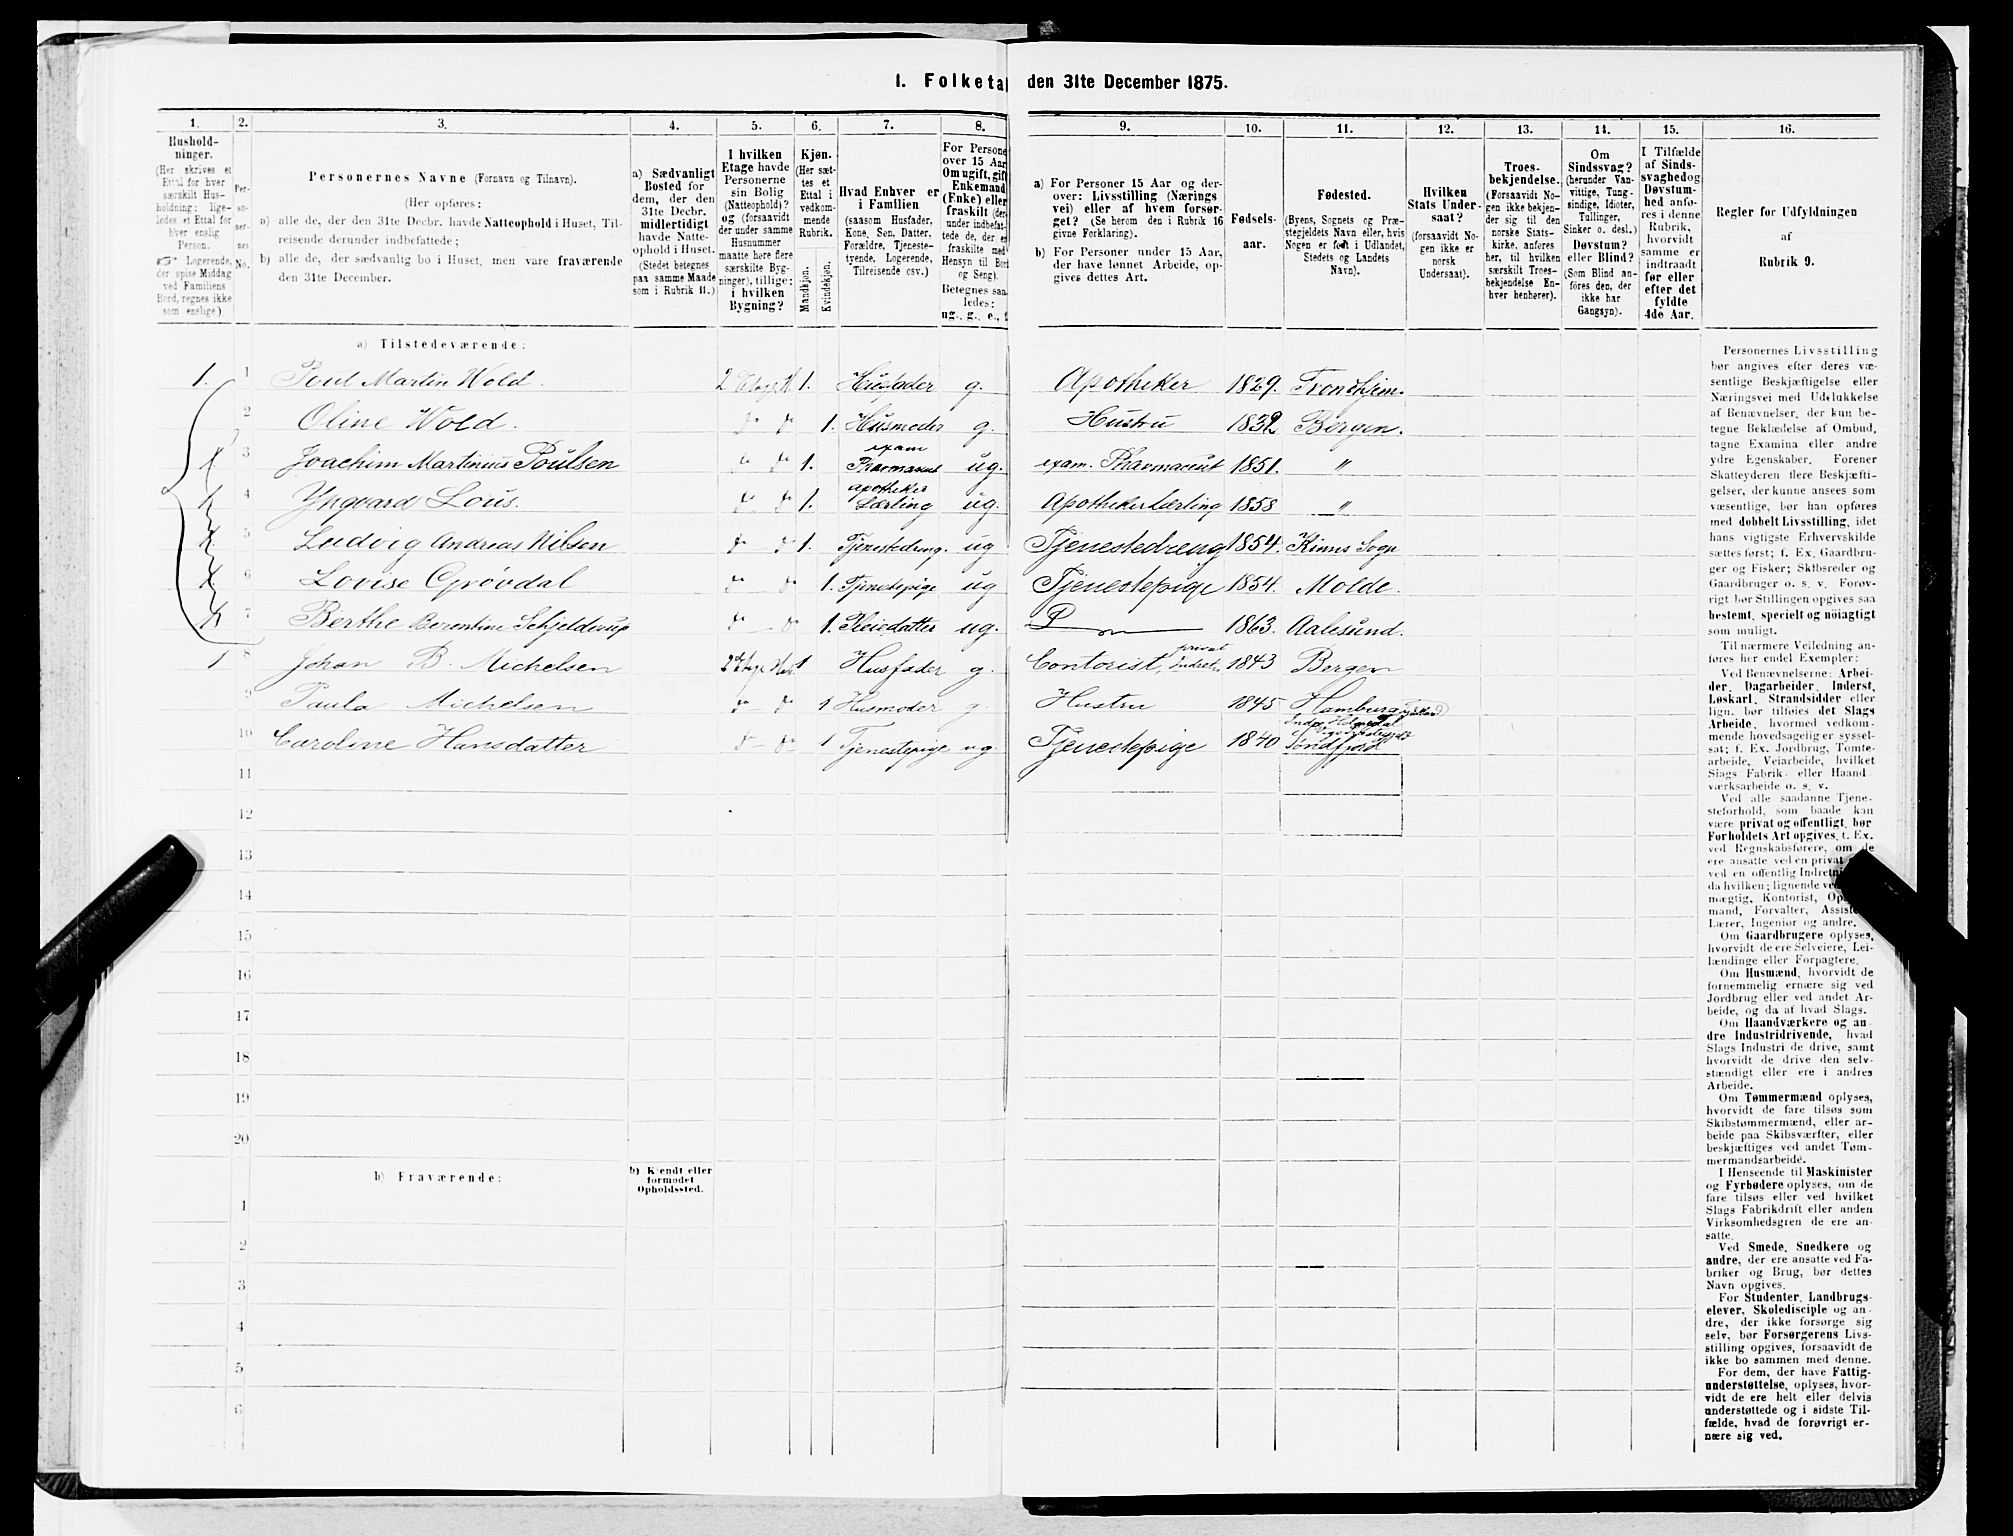 1. Folketa den 31te December 1875.
1. 2. 3. 4. 5. 6. 7. 8. 9. 10. 11. 12. 13. 14. 15. 16.
Hushold-
ninger.
(Her skrives et
Ettal for hver
særskilt Hus-
holdning; lige-
ledes et Ettal for
hver enslig
Person.
☞ Logerende,
der spise Middag
ved Familiens
Bord, regnes ikke
som enslige).
Per-
so-
ner-
nes
No.
Personernes Navne (Fornavn og Tilnavn).
(Her opføres:
a) alle de, der den 31te Decbr. havde Natteophold i Huset, Til-
reisende derunder indbefattede;
b) alle de, der sædvanlig bo i Huset, men vare fraværende
den 31te December.
a) Sædvanligt
Bosted for
dem, der den
31te Decbr.
midlertidigt
havde Natte-
ophold i Huset.
(Stedet betegnes
paa samme Maade
som i Rubrik 11.)
I hvilken
Etage havde
Personerne
sin Bolig
(Natteophold)?
og (forsaavidt
der under samme
Husnummer
maatte høre flere
særskilte Byg-
ninger), tillige:
i hvilken
Bygning?
Kjøn.
(Her sæt-
tes et
Ettal i
vedkom-
mende
Rubrik.
Mandkjøn.
Kvindekjøn.
Hvad Enhver er
i Familien
(saasom Husfader,
Kone, Søn, Datter,
Forældre, Tjeneste-
tyende, Logerende,
Tilreisende csv.)
For Persone
over 15 Aar
Om ugift, gif
Enkemand
(Enke) eller
fraskilt (der-
under indbefat-
tede de, der e
fraskilte med
Hensyn til Bor
og Seng).
Betegnes saa
ledes:
ug., g., e., f
a) For Personer 15 Aar og der-
over: Livsstilling (Nærings
vei) eller af hvem forsør-
get? (Se herom den i Rubrik 16
givne Forklaring).
b) For Personer under 15 Aar,
der have lønnet Arbeide, op-
gives dettes Art.
Fødsels-
aar.
Fødested.
(Byens, Sognets og Præ-
stegjeldets Navn eller, hvis
Nogen er født i Udlandet,
Stedets og Landets
Navn).
Hvilken
Stats Under-
saat?
(forsaavidt No-
gen ikke er
norsk
Undersaat).
Troes-
bekjendelse.
(Forsaavidt No-
gen ikke bekjen-
der sig til den
norske Stats-
kirke, anføres
her, til hvilken
særskilt Troes-
bekjendelse En-
hver henhører).
Om
Sindssvag?
(herunder Van-
vittige, Tung-
sindige, Idioter,
Tullinger,
Sinker o. desl.)
Døvstum?
eller Blind?
(Som Blind an-
føres den, der
ikke har
Gangsyn).
I Tilfælde
af Sinds-
svaghed og
Døvstum-
hed anfø-
res i denne
Rubrik,
hvorvidt
samme er
indtraadt
før eller
efter det
fyldte
4de Aar.
Regler for Udfyldningen
af
Rubrik 9.
a) Tilstedeværende:
1. 1 Poul Martin Wold. 2 Etage H. 1. Husfader g. Apotheker 1829. Trondhjem.
2 Oline Wold. do do 1. Husmoder g. Hustru 1832 Bergen.
3 Joachim Martinius Poulsen do do 1. exam Pharmaceut ug. exam. Pharmaceut 1851. "
4 Yngvard Lous. do do 1. apotheker Lærling ug. Apothekerlærling 1858 "
5 Ludvig Andreas Nilsen do do 1. Tjenestedreng. ug Tjenestedreng 1854. Kinns Sogn
6 Lovise Grøvdal do do 1. Tjenestepige ug Tjenestepige 1854. Molde.
7 Berthe Berentine Schjelderup do do 1. Pleiedatter ug. 1863. Aalesund.
1 8 Johan B. Michelsen 2 Etage 1 Husfader g. Contorist, privat Indretn 1843 Bergen
9 Paula Michelsen do do 1 Husmoder g. Hustru 1845 Hamburg
10 Caroline Hansdatter do do 1 Tjenestepige ug. Tjenestepige 1840 Søndfjord
11
12
13
14
15
16
17
18
19
20
b) Fraværende: b) Kjendt eller
formodet
Opholdssted.
1
2
3
4
5
6
Personernes Livsstilling
bør angives efter deres væ-
sentlige Beskjæftigelse eller
Næringsvei med Udelukkelse
af Benævnelser, der kun be-
tegne Beklædelse af Ombud,
tagne Examina eller andre
ydre Egenskaber. Forener
Skatteyderen flere Beskjæfti-
gelser, der kunne ansees som
væsentlige, bør han opføres
med dobbelt Livsstilling, idet
hans vigtigste Erhvervskilde
sættes først; f. Ex. Gaardbru-
ger og Fisker; Skibsreder og
Gaardbruger o. s. v. Forøv-
rigt bør Stillingen opgives saa
bestemt, specielt og nöiagtigt
som muligt.
Til nærmere Veiledning an-
føres her endel Exempler:
Ved Benævnelserne: Arbei-
der, Dagarbeider, Inderst,
Løskarl, Strandsidder eller
lign. bør tilføies det Slags
Arbeide, hvormed vedkom-
mende hovedsagelig er syssel-
sat; f. Ex. Jordbrug, Tomte-
arbeide, Veiarbeide, hvilket
Slags Fabrik- eller Haand
værksarbeide o. s. v.
Ved alle saadanne Tjene-
steforhold, som baade kan
være privat og offentligt, bør
Forholdets Art opgives, f. Ex.
ved Regnskabsførere, om de
ere ansatte ved en privat
ved en offentlig Indretni
da hvilken; lignende ve
mægtig, Kontorist, Op
mand, Forvalter, Assist
Lærer, Ingeniør og andre.
Om Gaardbrugere oplyses,
hvorvidt de ere Selveiere, Lei-
lændinge eller Forpagtere.
Om Husmænd, hvorvidt de
fornemmelig ernære sig ved
Jordbrug eller ved andet Ar-
beide, og da af hvad Slags.
Om Haandværkere og an
dre Industridrivende, hvad
Slags Industri de drive, samt
hvorvidt de drive den selv-
stændigt eller ere i andres
Arbeide.
Om Tømmermænd oplyses,
hvorvidt de fare tilsøs som
Skibstømmermænd, eller ar-
beide paa Skibsværfter, eller
beskjæftiges ved andet Tøm-
mermandsarbeide.
I Henseende til Maskinister
og Fyrbødere oplyses, om de
fare tilsøs eller ved hvilket
Slags Fabrikdrift eller anden
Virksomhedsgren de ere an-
satte.
Ved Smede, Snedkere og
andre, der ere ansatte ved Fa-
briker og Brug, bør dettes
Navn opgives.
For Studenter, Landbrugs-
elever, Skoledisciple og an-
dre, der ikke forsørge sig
selv, bør Forsørgerens Livs-
stilling opgives, forsaavidt de
ikke bo sammen med denne.
For dem, der have Fattig-
understøttelse, oplyses, hvor-
vidt de ere helt eller delvis
understøttede og i sidste Til-
fælde, hvad de forøvrigt er-
nære sig ved.